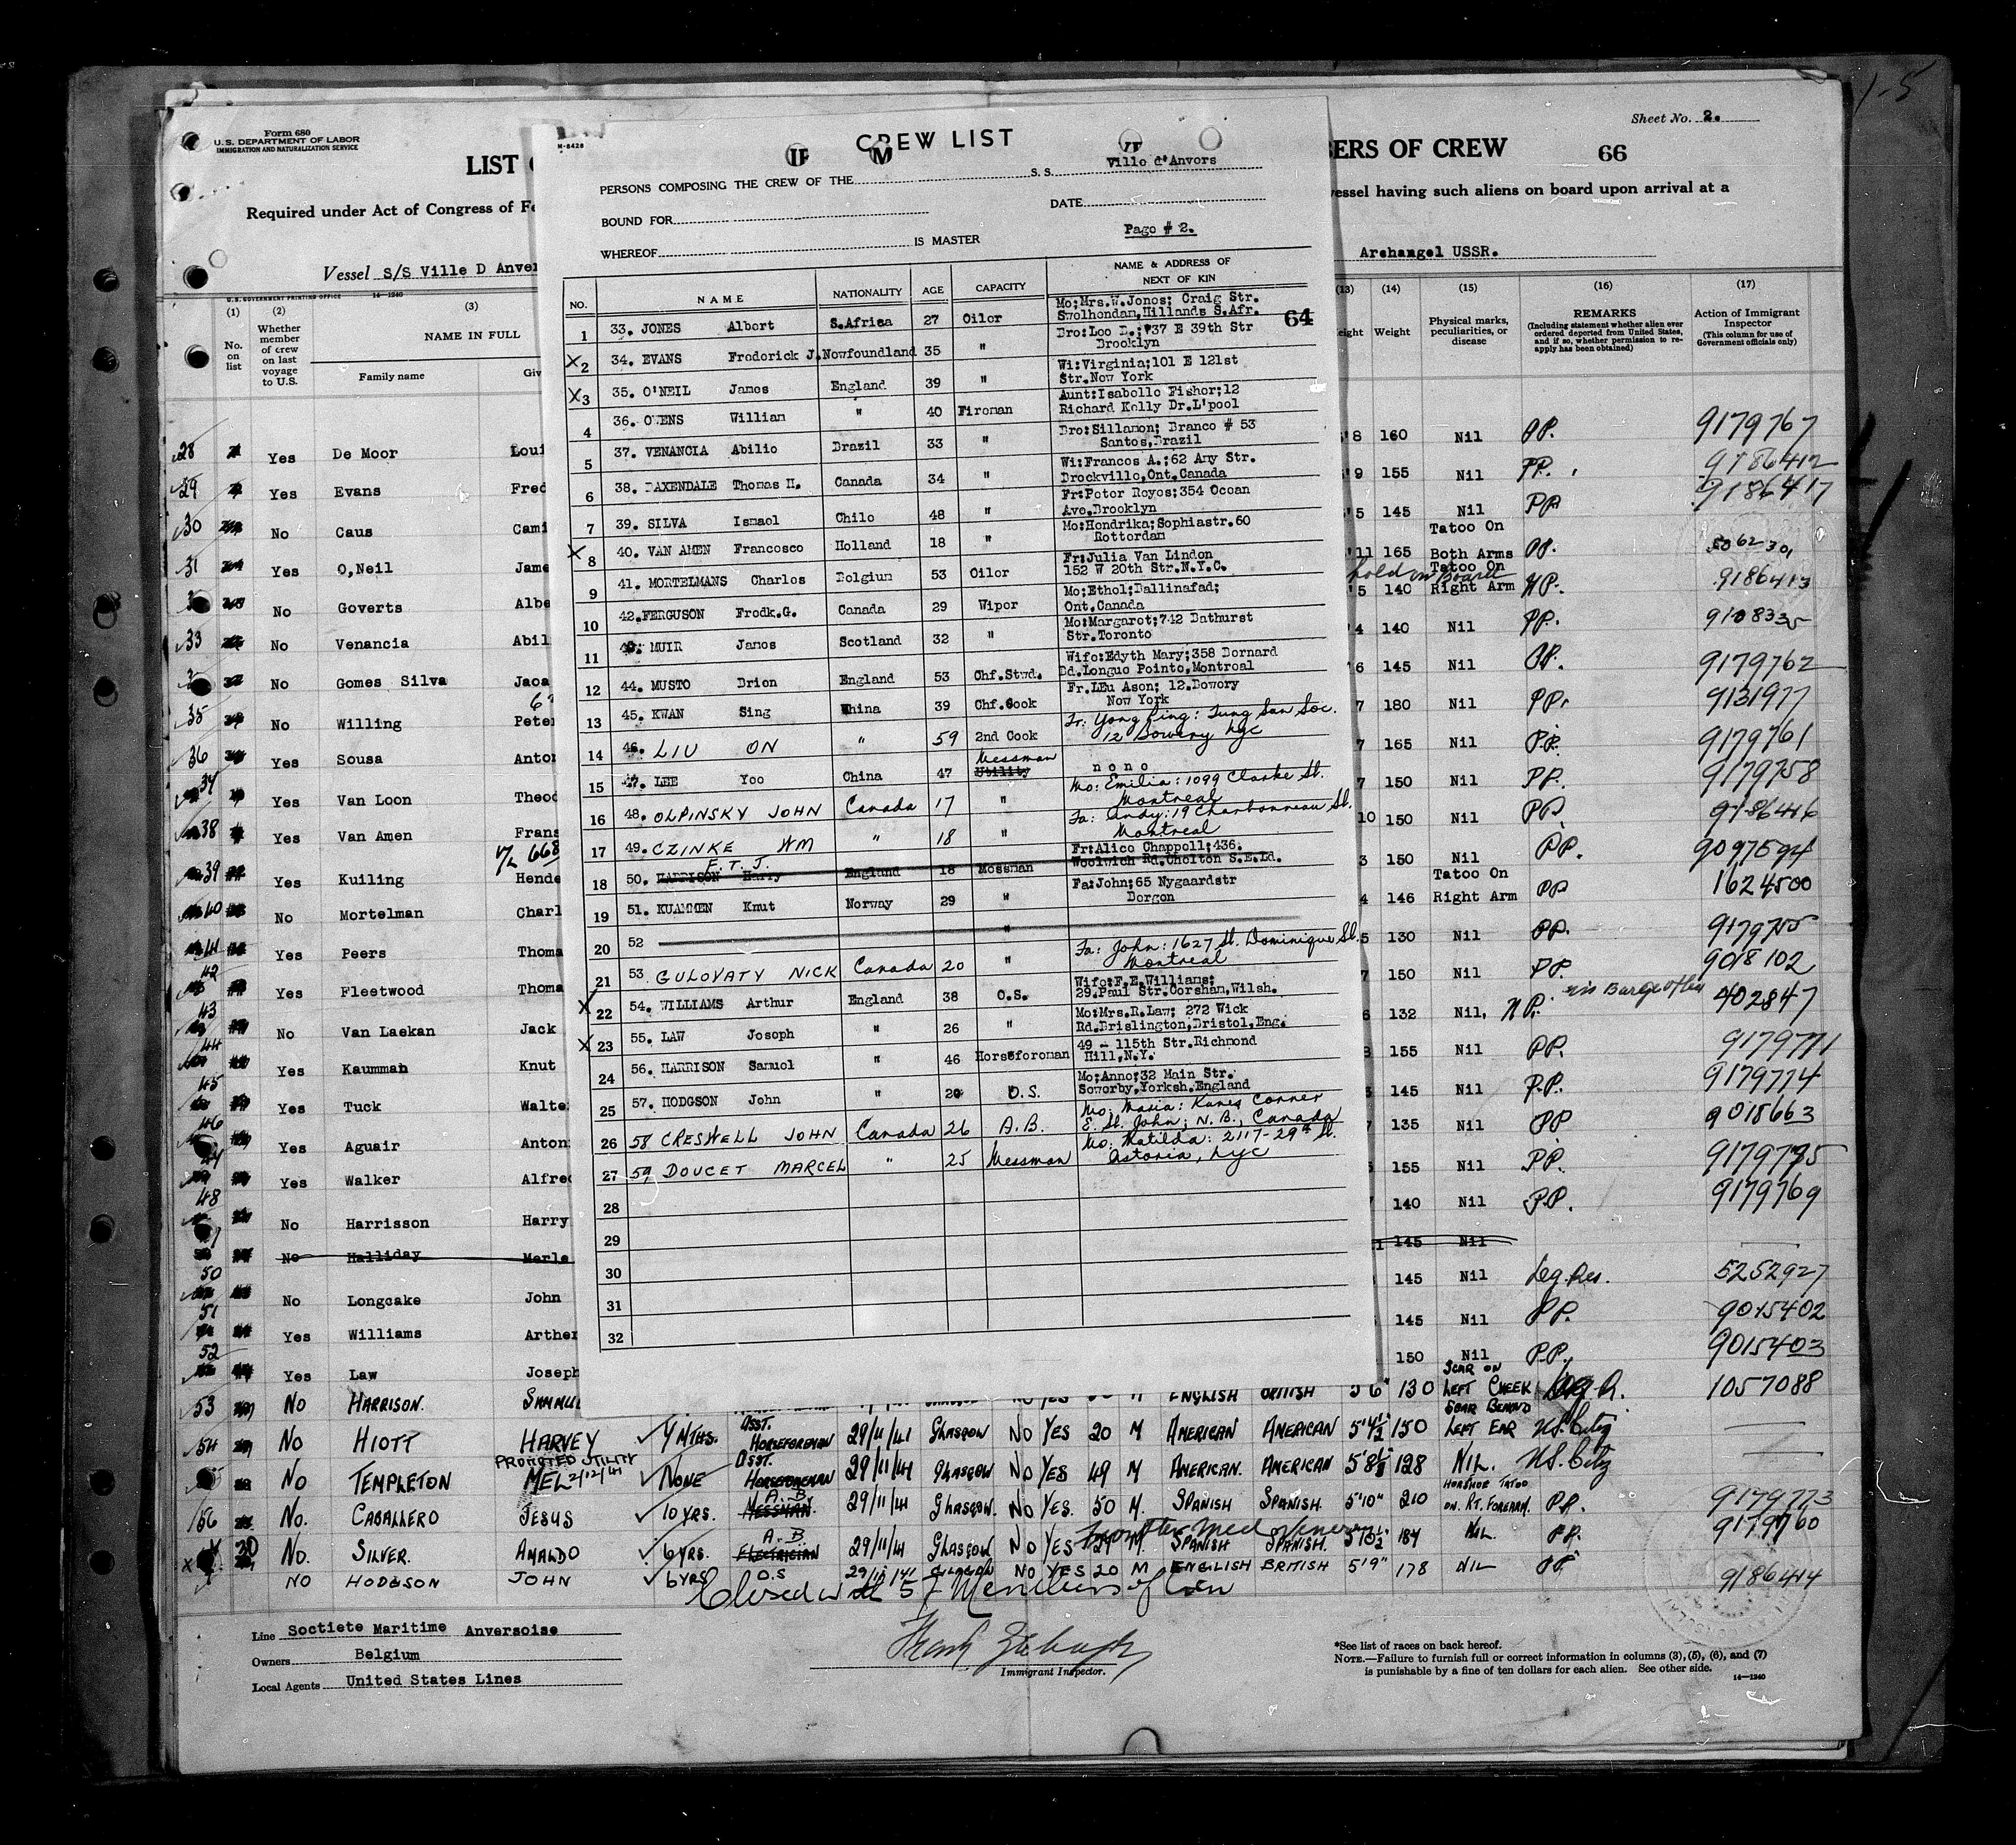 1-5
Form 680
U.S. DEPARTMENT OF LABOR
IMMIGRATION AND NATURALIZATION SERVICE
Sheet No. 2.
LIST
BERS OF CREW 66
Required under Act of Congress of Fe
vessel having such aliens on board upon arrival at a
Vessel S/S Ville D Anver
Archangel USSR.
U.S. GOVERNMENT PRINTING OFFICE 14-1240
(1) (2) (3)
No. on list
Whether member of crew on last voyage to U.S.
NAME IN FULL
Family name Giv
28 Yes De Moor Loui
29 Yes Evans Fred
30 No Caus Cami
31 Yes O,Neil Jame
No Goverts Albe
33 No Venancia Abil
No Gomes Silva Jaoa
35 No Willing Peter
36 Yes Sousa Anton
Yes Van Loon Theod
38 Yes Van Amen Frans
39 Yes Kuiling Hende
40 No Mortelman Charl
41 Yes Peers Thoma
42 Yes Fleetwood Thoma
43 No Van Laekan Jack
44 Yes Kaumman Knut
45 Yes Tuck Walte
46 Yes Aguair Anton
Yes Walker Alfred
48 No Harrisson Harry
No Halliday Merle
50 No Longcake John
51 Yes Williams Arther
52 Yes Law Joseph
M-8428
CREW LIST
PERSONS COMPOSING THE CREW OF THE S.S. Ville d'Anvers
BOUND FOR DATE
WHEREOF IS MASTER Page # 2.
NO. NAME NATIONALITY AGE CAPACITY NAME & ADDRESS OF NEXT OF KIN
64
1 33. JONES Albert S.Africa 27 Oiler Mo:Mrs.W.Jones; Craig Str. Swelhendam,Hillands S.Afr.
X2 34. EVANS Frederick J. Newfoundland 35 " Bro:Leo B.;737 E 39th Str Brooklyn
X3 35. O'NEIL James England 39 " Wi:Virginia;101 E 121st Str.New York
4 36. OWENS William " 40 Fireman Aunt:Isabelle Fisher;12 Richard Kelly Dr.L'pool
5 37. VENANCIA Abilio Brazil 33 " Bro:Sillamon; Branco # 53 Santos,Brazil
6 38. BAXENDALE Thomas H. Canada 34 " Wi:Frances A.;62 Any Str. Brockville,Ont.Canada
7 39. SILVA Ismael Chile 48 " Fr:Peter Reyes;354 Ocean Ave.Brooklyn
X8 40. VAN AMEN Francesco Holland 18 " Mo:Hendrika;Sophiastr.60 Rotterdam
9 41. MORTELMANS Charles Belgium 53 Oiler Fr:Julia Van Linden 152 W 20th Str.N.Y.C.
10 42. FERGUSON Fredk.G. Canada 29 Wiper Mo:Ethel;Ballinafad; Ont.Canada
11 43. MUIR James Scotland 32 " Mo:Margaret;742 Bathurst Str.Toronto
12 44. MUSTO Brion England 53 Chf.Stwd. Wife:Edyth Mary;358 Bernard Bd.Longue Pointe,Montreal
13 45. KWAN Sing China 39 Chf.Cook Fr.LEu Ason; 12.Bowery New York
14 46. LIU ON " 59 2nd Cook Fr: Yong Ping: Tung San Soc. 12 Bowery nyc
15 47. LEE Yoo China 47 Messman Utility none
16 48. OLPINSKY JOHN Canada 17 " Mo: Emilia: 1099 Clarke St. Montreal
17 49. CZINKE WM " 18 " Fa: Andy: 19 Charbonneau St. Montreal
18 50. HARRISON Harry F.T.J. England 18 Messman Fr:Alice Chappell;436. Woolwich Rd.Cholton S.E.Ld.
19 51. KUAMMEN Knut Norway 29 " Fa:John;65 Nygaardstr Bergen
20 52 "
21 53. GULOVATY NICK Canada 20 " Fa: John: 1627 St. Dominique St. Montreal
X22 54. WILLIAMS Arthur England 38 O.S. Wife:F.E.Williams; 29.Paul Str.Corsham,Wilsh.
X23 55. LAW Joseph " 26 " Mo:Mrs.R.Law; 272 Wick Rd.Brislington,Bristol,Eng.
24 56. HARRISON Samuel " 46 Horseforeman 49 - 115th Str.Richmond Hill,N.Y.
25 57. HODGSON John " 20 O.S. Mo:Anne;32 Main Str. Soworby,Yorksh.England
26 58 CRESWELL JOHN Canada 26 A.B. Mo: Maria: Kanes Corner E. St. John; N.B., Canada
27 59 DOUCET MARCEL " 25 Messman Mo: Matilda: 2117-29th St. Astoria, nyc
28
29
30
31
32
(13) (14) (15) (16) (17)
eight Weight
Physical marks, peculiarities, or disease
REMARKS
(Including statement whether alien ever ordered deported from United States, and if so, whether permission to re-apply has been obtained)
Action of Immigrant Inspector
(This column for use of Government officials only)
8 160 Nil PP. 9179767
9 155 Nil PP. 9186412
5 145 Nil PP 9186417
11 165 Tatoo On Both Arms PP. 5062301
hold on Board
5 140 Tatoo On Right Arm NP. 9186413
4 140 Nil PP. 9108335
6 145 Nil PP. 9179762
7 180 Nil PP. 9131977
7 165 Nil P.P. 9179761
7 150 Nil PP. 9179758
10 150 Nil PP. 9186416
3 150 Nil PP. 9097594
4 146 Tatoo On Right Arm PP 1624500
5 130 Nil PP. 9179755
7 150 Nil PP. 9018102
6 132 Nil, NP. 402847
155 Nil PP. 9179771
145 Nil P.P. 9179774
7 135 Nil PP 9015663
155 Nil PP. 9179775
140 Nil P.P. 9179769
145 Nil
145 Nil Leg.Res. 5252927
145 Nil PP. 9015402
150 Nil P.P. 9015403
53 No HARRISON. SAMMU YES M ENGLISH BRITISH 5'6" 130 SCAR ON LEFT CHEEK Leg. R. 1057088
54 No HIOTT HARVEY 4 MTHS. ASST. HORSEFOREMAN 29/11/41 GLASGOW NO YES 20 M AMERICAN AMERICAN 5'4½" 150 SCAR BEHIND LEFT EAR US. City
PROMOTED UTILITY 2/12/41
No TEMPLETON MEL NONE ASST. HORSEFOREMAN 29/11/41 GLASGOW NO YES 49 M AMERICAN. AMERICAN 5'8½" 128 NIL. US. City
56 No. CABALLERO JESUS 10 YRS. A.B. MESSMAN 29/11/41 GLASGOW. NO YES. 50 M. SPANISH SPANISH. 5'10" 210 HORSHOE TATOO ON. RT. FOREARM. PP. 9179773
No. SILVER. AMALDO 6 YRS. A.B. ELECTRICIAN 29/11/41 GLASGOW NO YES 29 M. SPANISH SPANISH. 184 NIL. PP. 9179760
NO HODGSON JOHN 6 YRS O.S 29/11/41 GLASGOW NO YES 20 M ENGLISH BRITISH 5'9" 178 NIL PP 9186414
Closed with 57 Members of Crew
Line Soctiete Maritime Anversoise
Owners Belgium
Local Agents United States Lines
Immigrant Inspector.
*See list of races on back hereof.
NOTE.—Failure to furnish full or correct information in columns (3), (5), (6), and (7)
is punishable by a fine of ten dollars for each alien. See other side. 14—1240